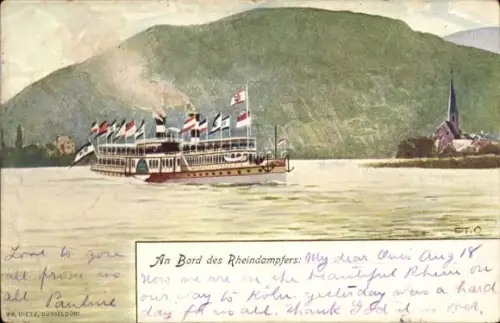 An Bord des Rheindampfers:
My dear Aug 18
Now we are on the beautiful Rhein on
our way to Köln, yesterday was a hard
day for us all, thank God it is over.
Love to you
all from us
all Pauline
FR. DIETZ, DÜSSELDORF